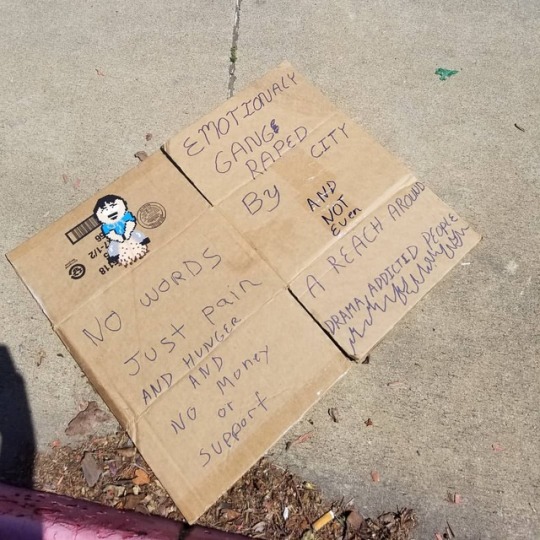 EMOTIONALY
GANG
RAPED
BY CITY
AND
NOT
EVEN
A REACH AROUND
DRAMA ADDICTED PEOPLE
NO WORDS
JUST PAIN
AND HUNGER
AND
NO MONEY
OR
SUPPORT